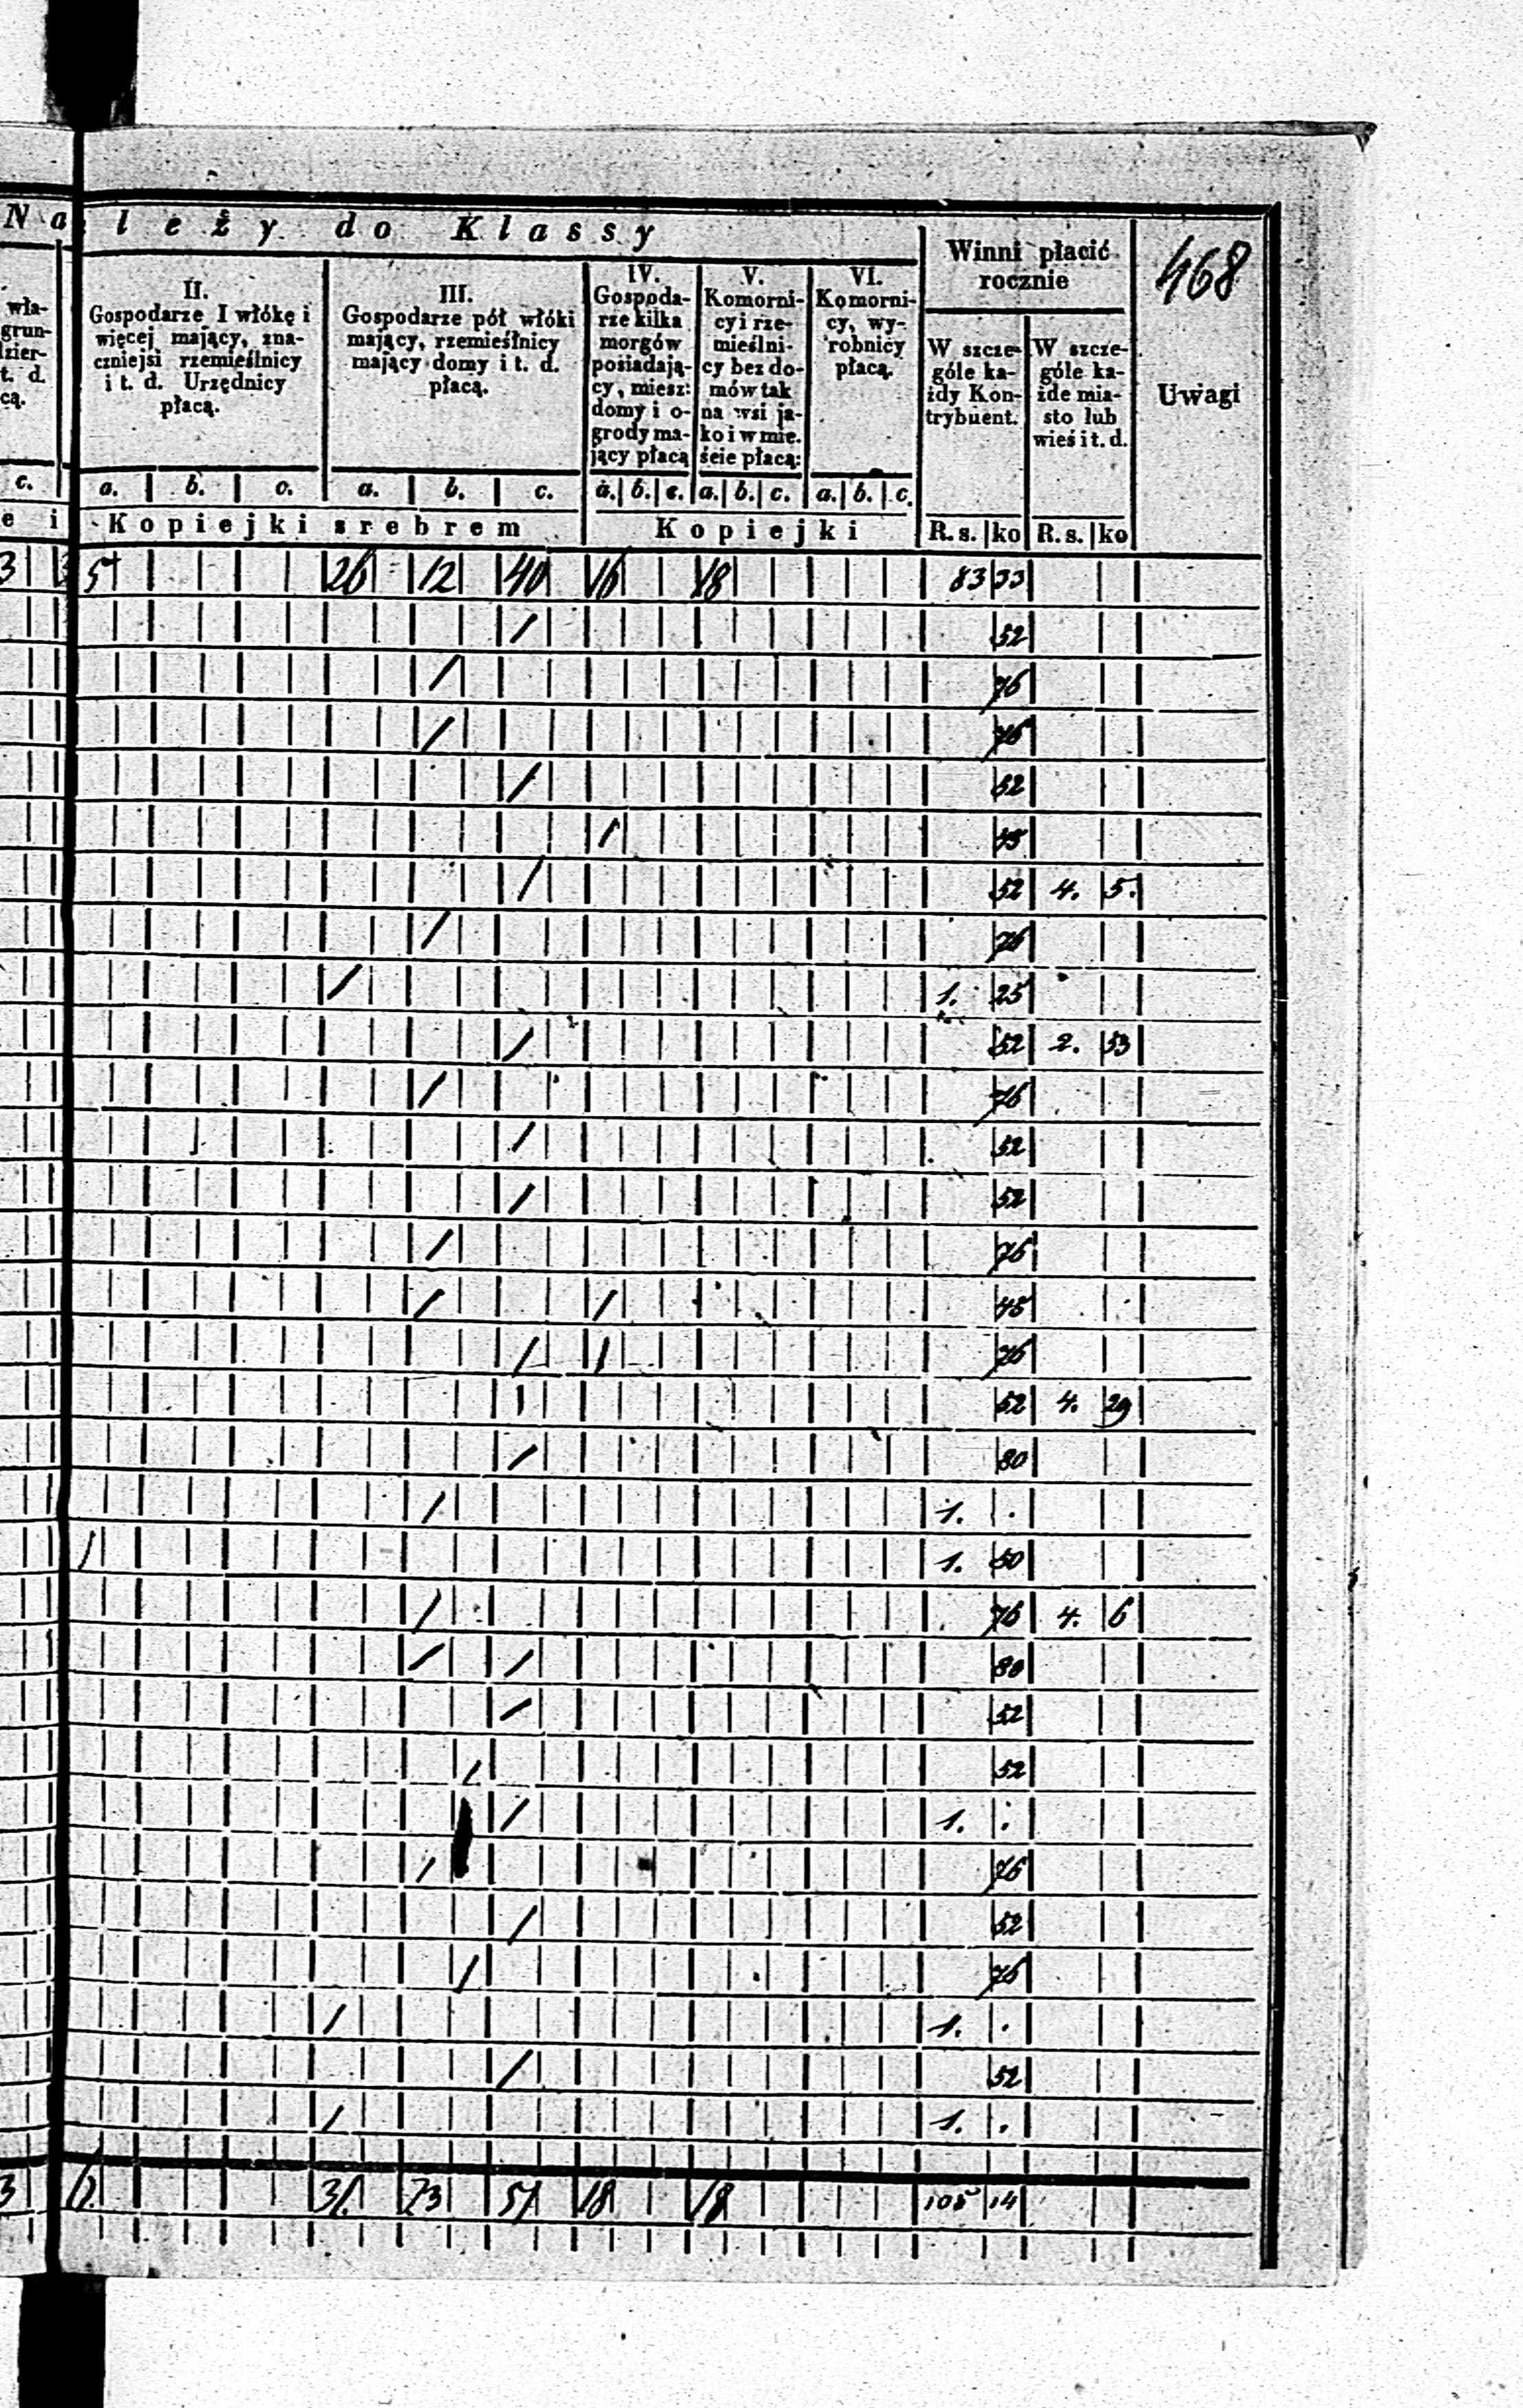 Na leży do Klassy
Winni płacić rocznie
468
wła-
grun-
dzier-
t. d.
cą.
II.
Gospodarze I włókę i
więcej mający, zna-
czniejsi rzemieślnicy
i t. d. Urzędnicy
płacą.
III.
Gospodarze pół włóki
mający, rzemieślnicy
mający domy i t. d.
płacą.
IV.
Gospoda-
rze kilka
morgów
posiadają-
cy, miesz:
domy i o-
grody ma-
jący płacą
V.
Komorni-
cy i rze-
mieślni-
cy bez do-
mów tak
na wsi ja-
ko i w mie.
ście płacą:
VI.
Komorni-
cy, wy-
robnicy
płacą.
W szcze-
góle ka-
żdy Kon-
trybuent.
W szcze-
góle ka-
żde mia-
sto lub
wieś i t. d.
Uwagi
c. a. b. c. a. b. c. a. b. c. a. b. c. a. b. c.
e i Kopiejki srebrem Kopiejki R. s. ko R. s. ko
3 5 26 12 40 16 18 83 33
/ 52
/ 76
/ 76
/ 52
/ 45
/ 52 4. 5.
/ 76
/ 1. 25
/ 52 2. 53
/ 76
/ 52
/ 52
/ 76
/ / 45
/ / 76
/ 52 4. 29
/ 80
/ 1. .
/ 1. 50
/ 76 4. 6
/ / 80
/ 52
/ 52
/ 1. .
/ 76
/ 52
/ 76
/ 1. .
/ 52
/ 1. .
3 6. 31. 23 51 18 18 105 14